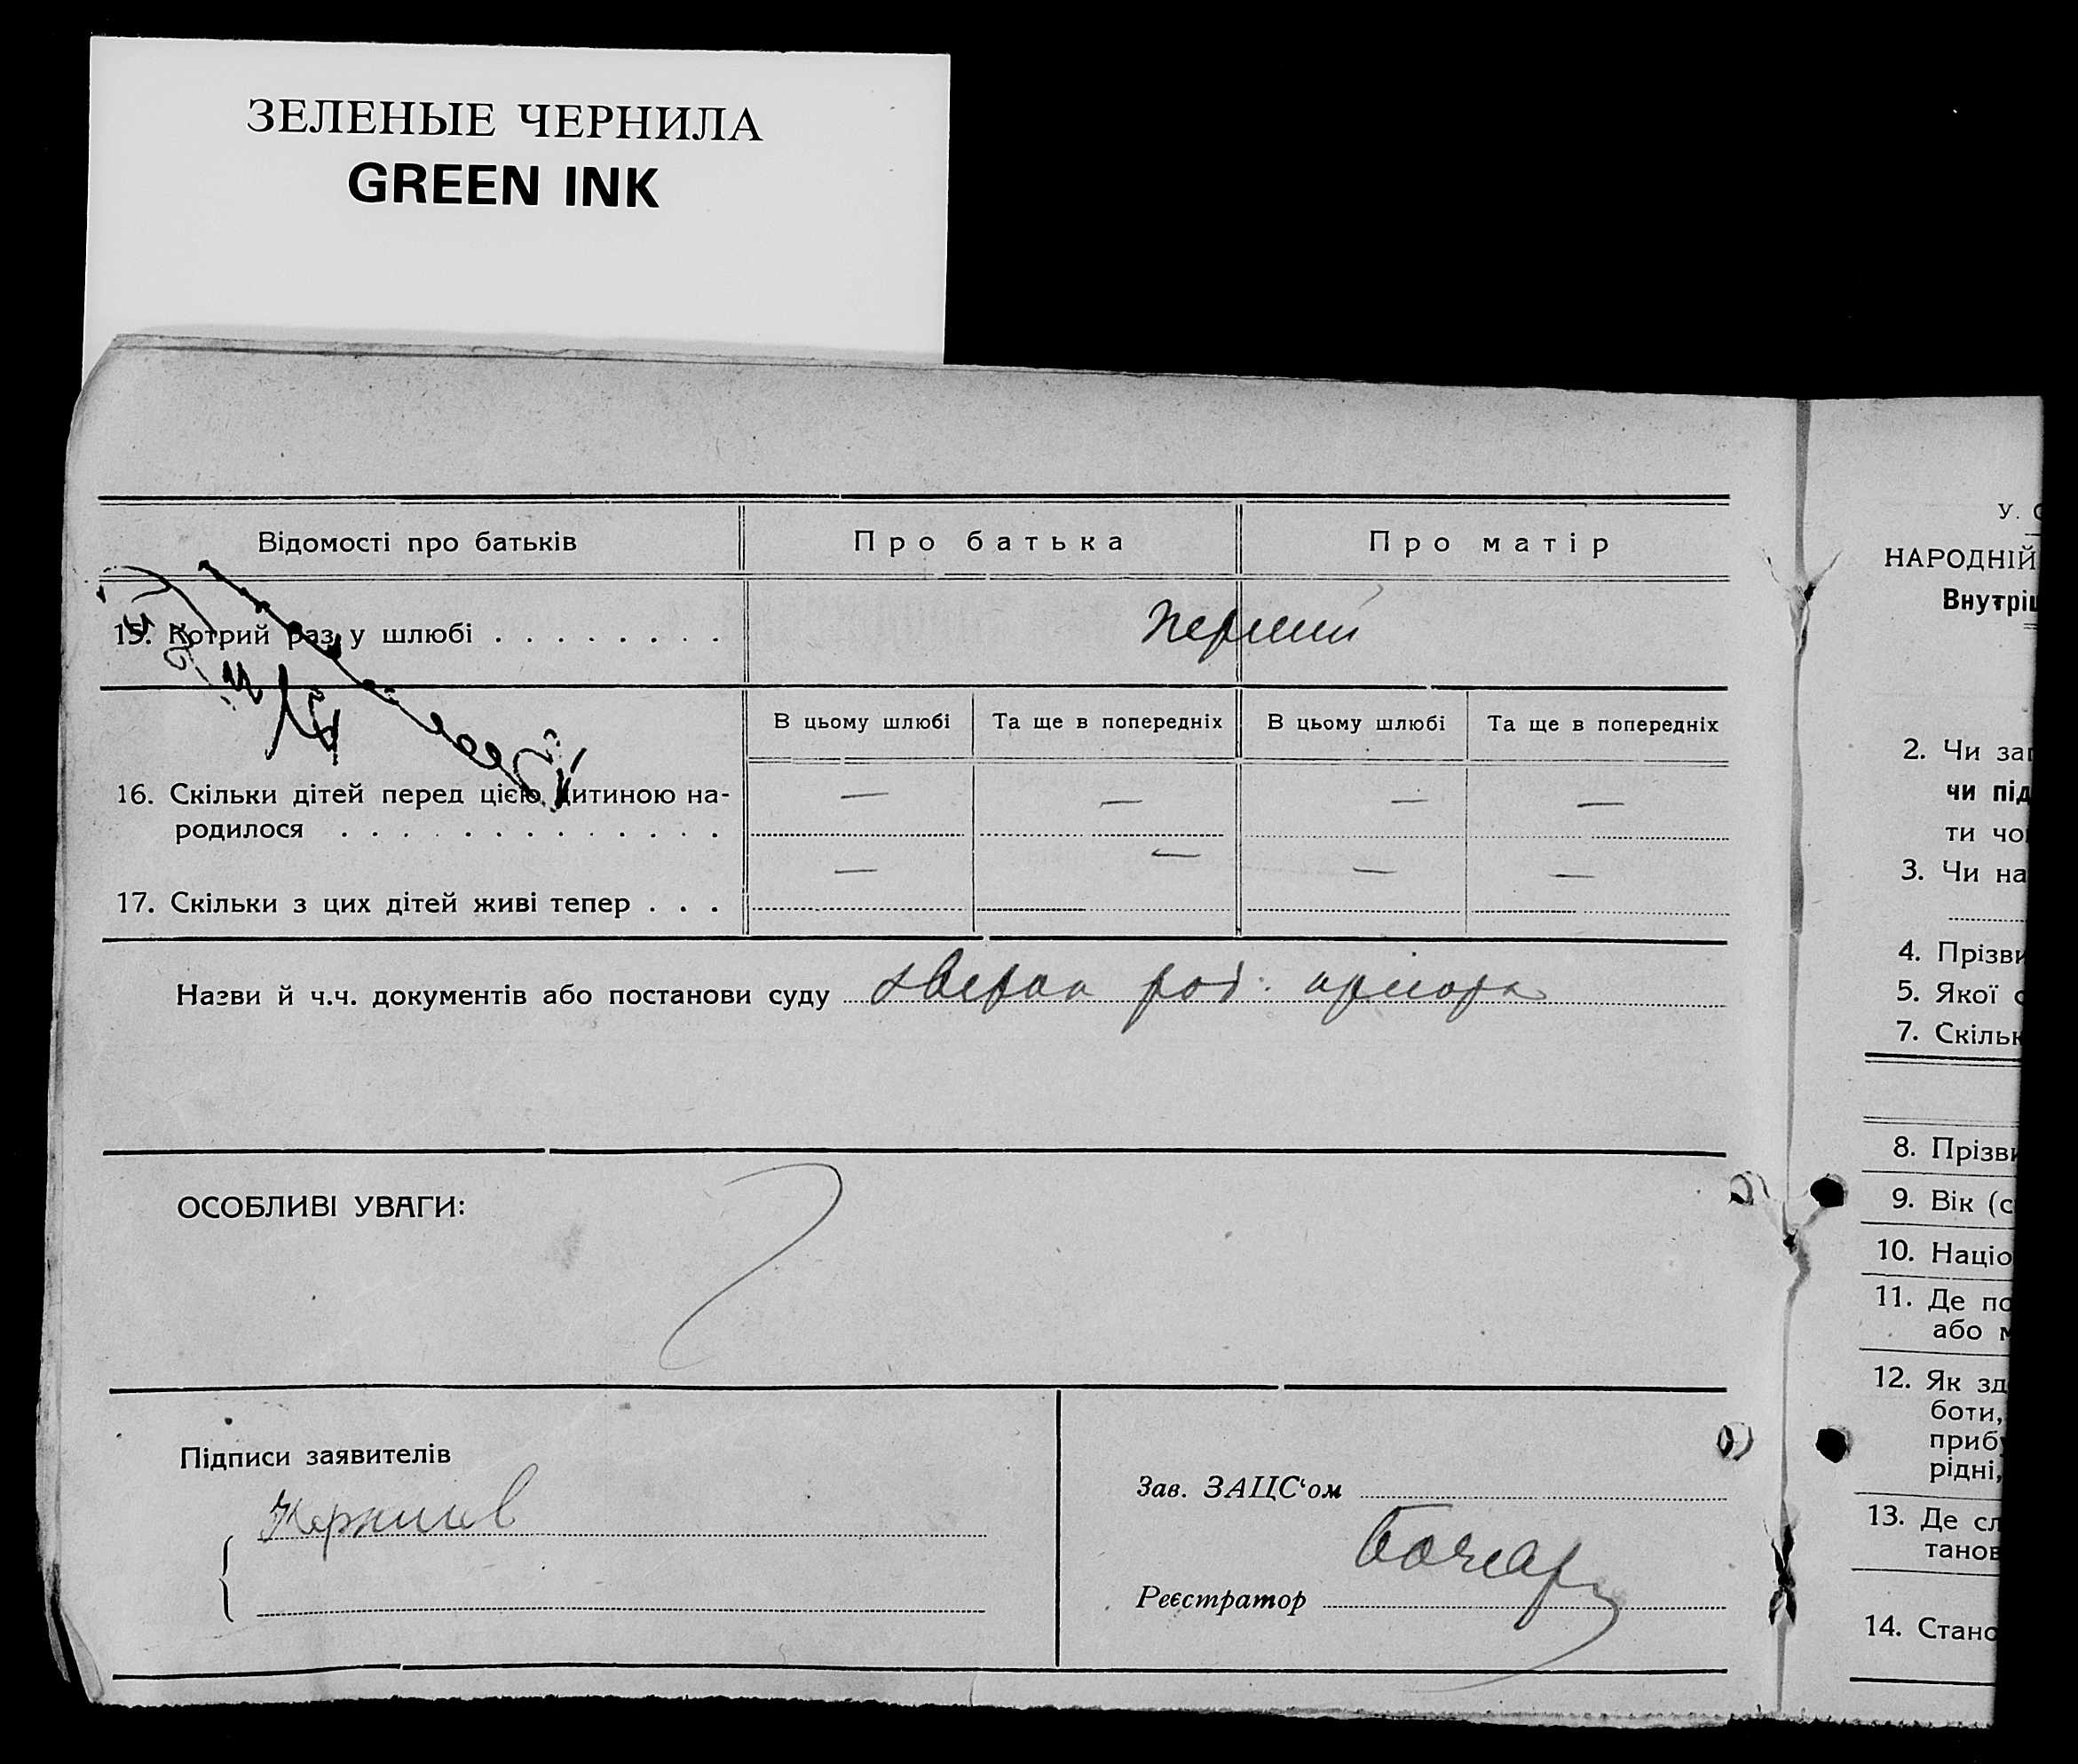 ЗЕЛЕНЫЕ ЧЕРНИЛА
GREEN INK
Відомості про батьків
Про батька
Про матір
15. Котрий раз у шлюбі . . . . . . . .
перший
В цьому шлюбі
Та ще в попередніх
В цьому шлюбі
Та ще в попередніх
16. Скільки дітей перед цією дитиною на-
родилося . . . . . . . . . . . . .
— — — —
—
— — —
17. Скільки з цих дітей живі тепер . . .
Назви й ч.ч. документів або постанови суду
ОСОБЛИВІ УВАГИ:
Підписи заявителів
Зав. ЗАЦС‘ом
Реєстратор
У. С
НАРОДНІЙ
Внутріш
2. Чи заг
чи під
ти чо
3. Чи на
4. Прізви
5. Якої с
7. Скільк
8. Прізви
9. Вік (с
10. Націо
11. Де по
або м
12. Як зд
боти,
прибу
рідні,
13. Де сл
танов
14. Стано